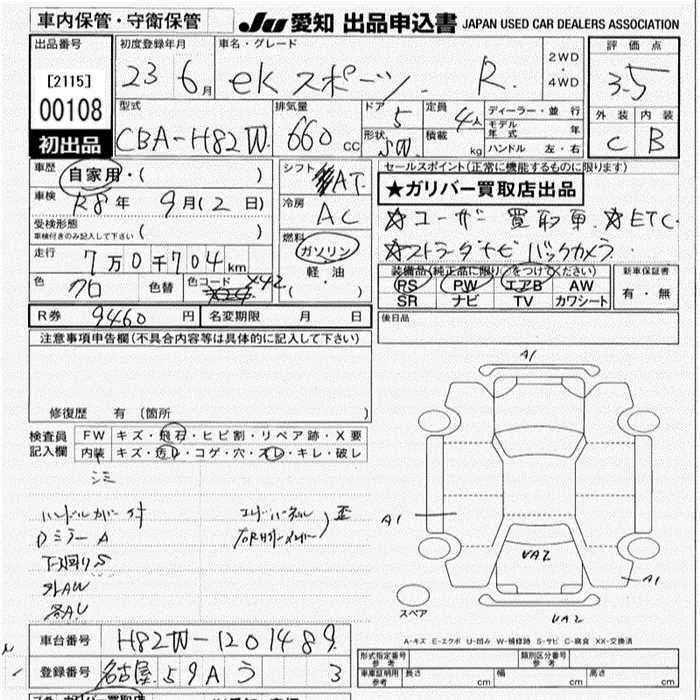 車内保管・守衛保管
JU 愛知 出品申込書 JAPAN USED CAR DEALERS ASSOCIATION
出品番号
[2115]
00108
初出品
初度登録年月
23 6月
車名・グレード
ekスポーツ R.
2WD
4WD
評価点
3.5
外装 内装
C B
型式
CBA-H82W
排気量
660 cc
ドア
5
形状
SW
定員
4人
積載
kg
ディーラー・並行
モデル年式 年
ハンドル 左・右
車歴
自家用・( )
車検
R8年 9月(2日)
受検形態
車検付きのみ記入して下さい ( )
走行
7万0千704km
色
クロ
色替
色コード
X42
シフト
AT
冷房
AC
燃料
ガソリン
軽油
( )
セールスポイント(正常に機能するものに限ります)
★ガリバー買取店出品
☆ユーザー買取車 ☆ETC
☆ストラーダナビ バックカメラ
装備品(純正品に限り○をつけてください)
PS PW エアB AW
SR ナビ TV カワシート
新車保証書
有・無
R券 9460円
名変期限 月 日
後日品
注意事項申告欄(不具合内容等は具体的に記入して下さい)
修復歴 有 (箇所 )
検査員
記入欄
FW キズ・飛石・ヒビ割・リペア跡・X要
内装 キズ・汚レ・コゲ・穴・スレ・キレ・破レ
シミ
ハンドルカバー付
DミラーA
下廻りS
各AU
歪
A1
A1
UA2
A1
UA2
スペア
A-キズ E-エクボ U-凹み W-補修跡 S-サビ C-腐食 XX-交換済
車台番号 H82W-1201489
登録番号 名古屋 59A う 3
形式指定番号
参考
類別区分番号
参考
車庫証明用
参考
長さ cm
幅 cm
高さ cm